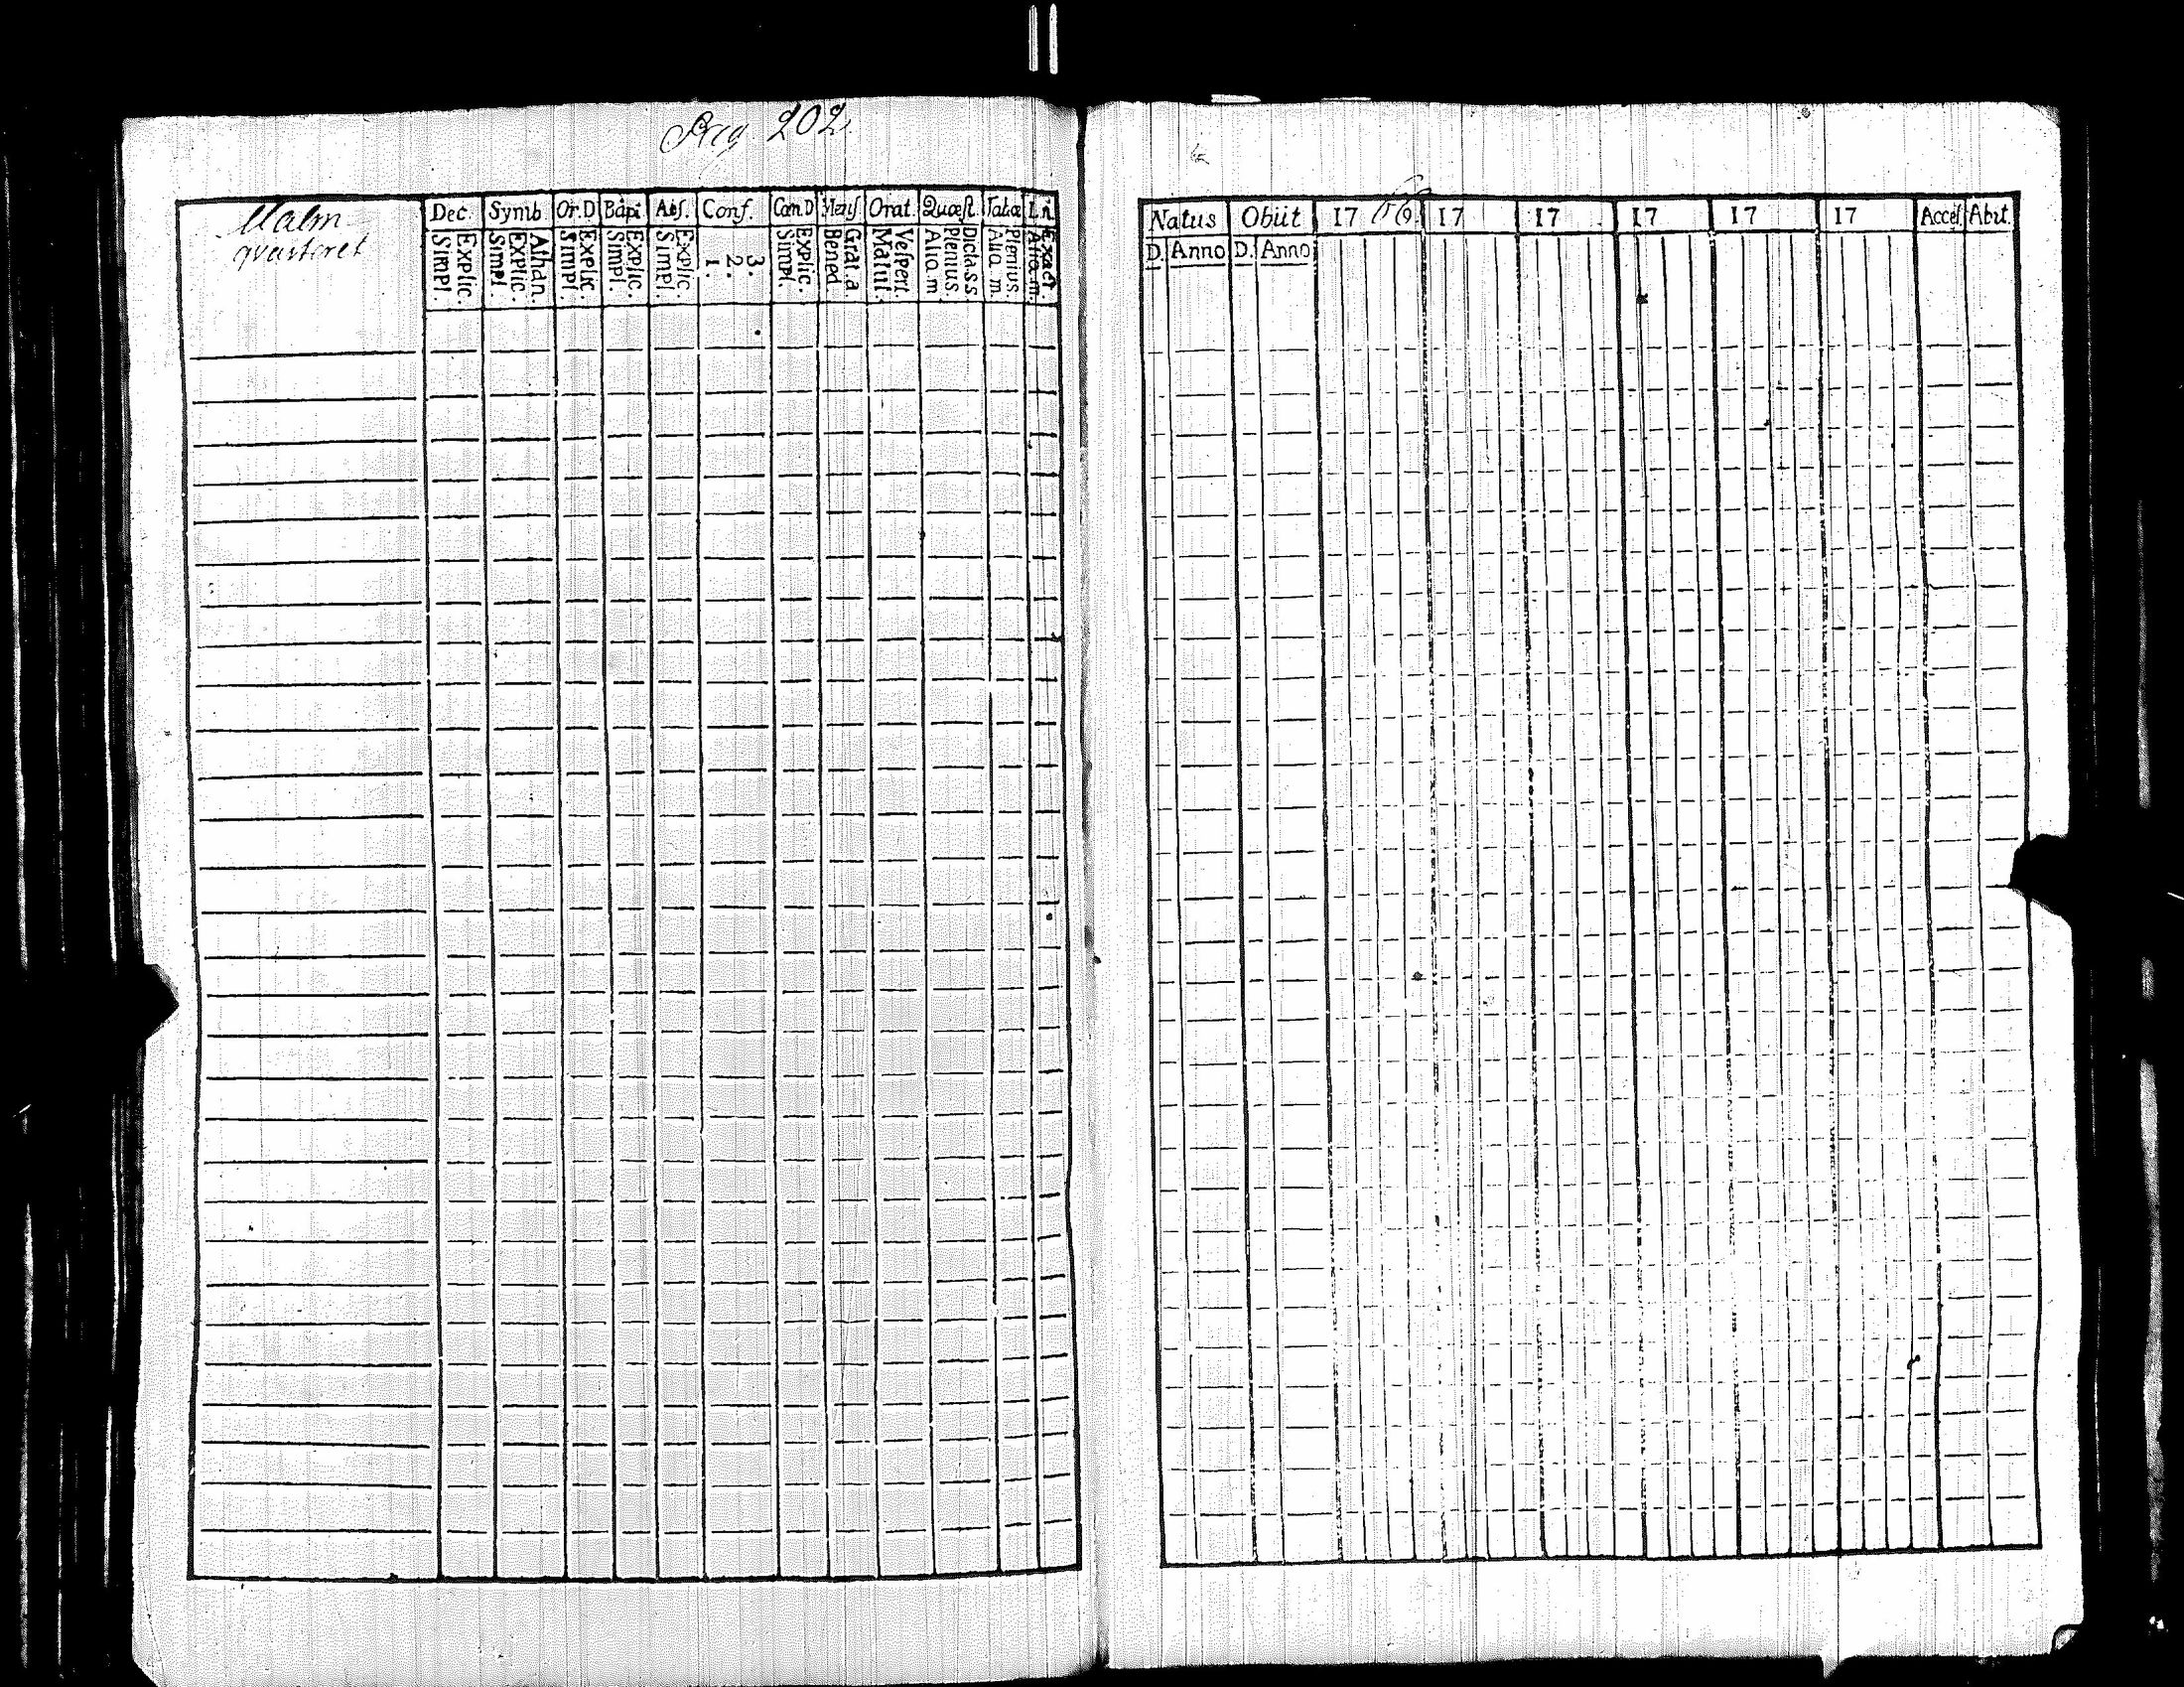 Pag 202
Malm
qvarteret
Dec. Symb Or.D Bapt. Abs. Conf. Cœn.D Mens Orat. Quæst. Tabœ L.n
Simpl. Explic. Simpl. Explic. Athan. Simpl. Explic. Simpl. Explic. Simpl. Explic. 1. 2. 3. Simpl. Explic. Bened Grat. a Matut. Vespert. Aliq. m Plenius. Dicta S.S. Aliq. m. Plenius. Aliq. m. Exact.
Natus Obiit 17 17 17 17 17 17 Acces Abit.
D. Anno D. Anno